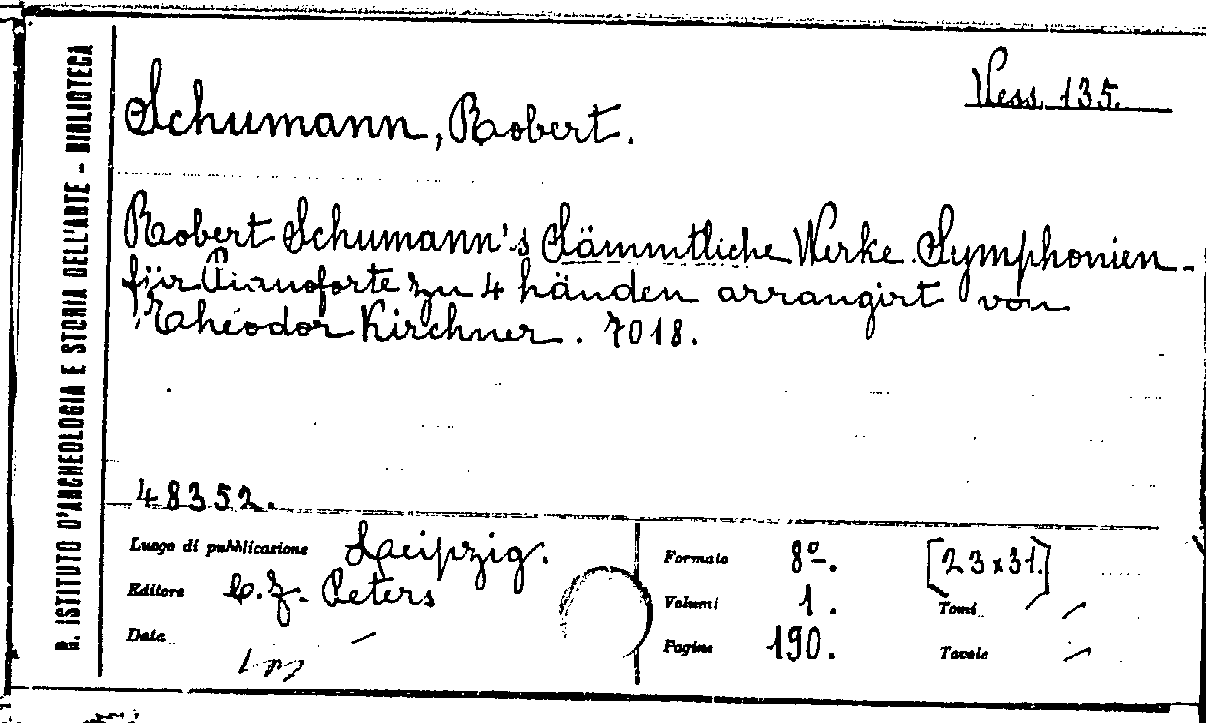 R. ISTITUTO D'ARCHEOLOGIA E STORIA DELL'ARTE - BIBLIOTECA
Vess. 135.
Schumann, Robert.
Robert Schumann's Sämmtliche Werke. Symphonien -
für Pianoforte zu 4 händen arrangirt von
Theodor Kirchner. 7018.
48352.
Luogo di pubblicazione Leipzig.
Editore C. F. Peters
Data —
Formato 8º. [23x31.]
Volumi 1. Tomi —
Pagine 190. Tavole —